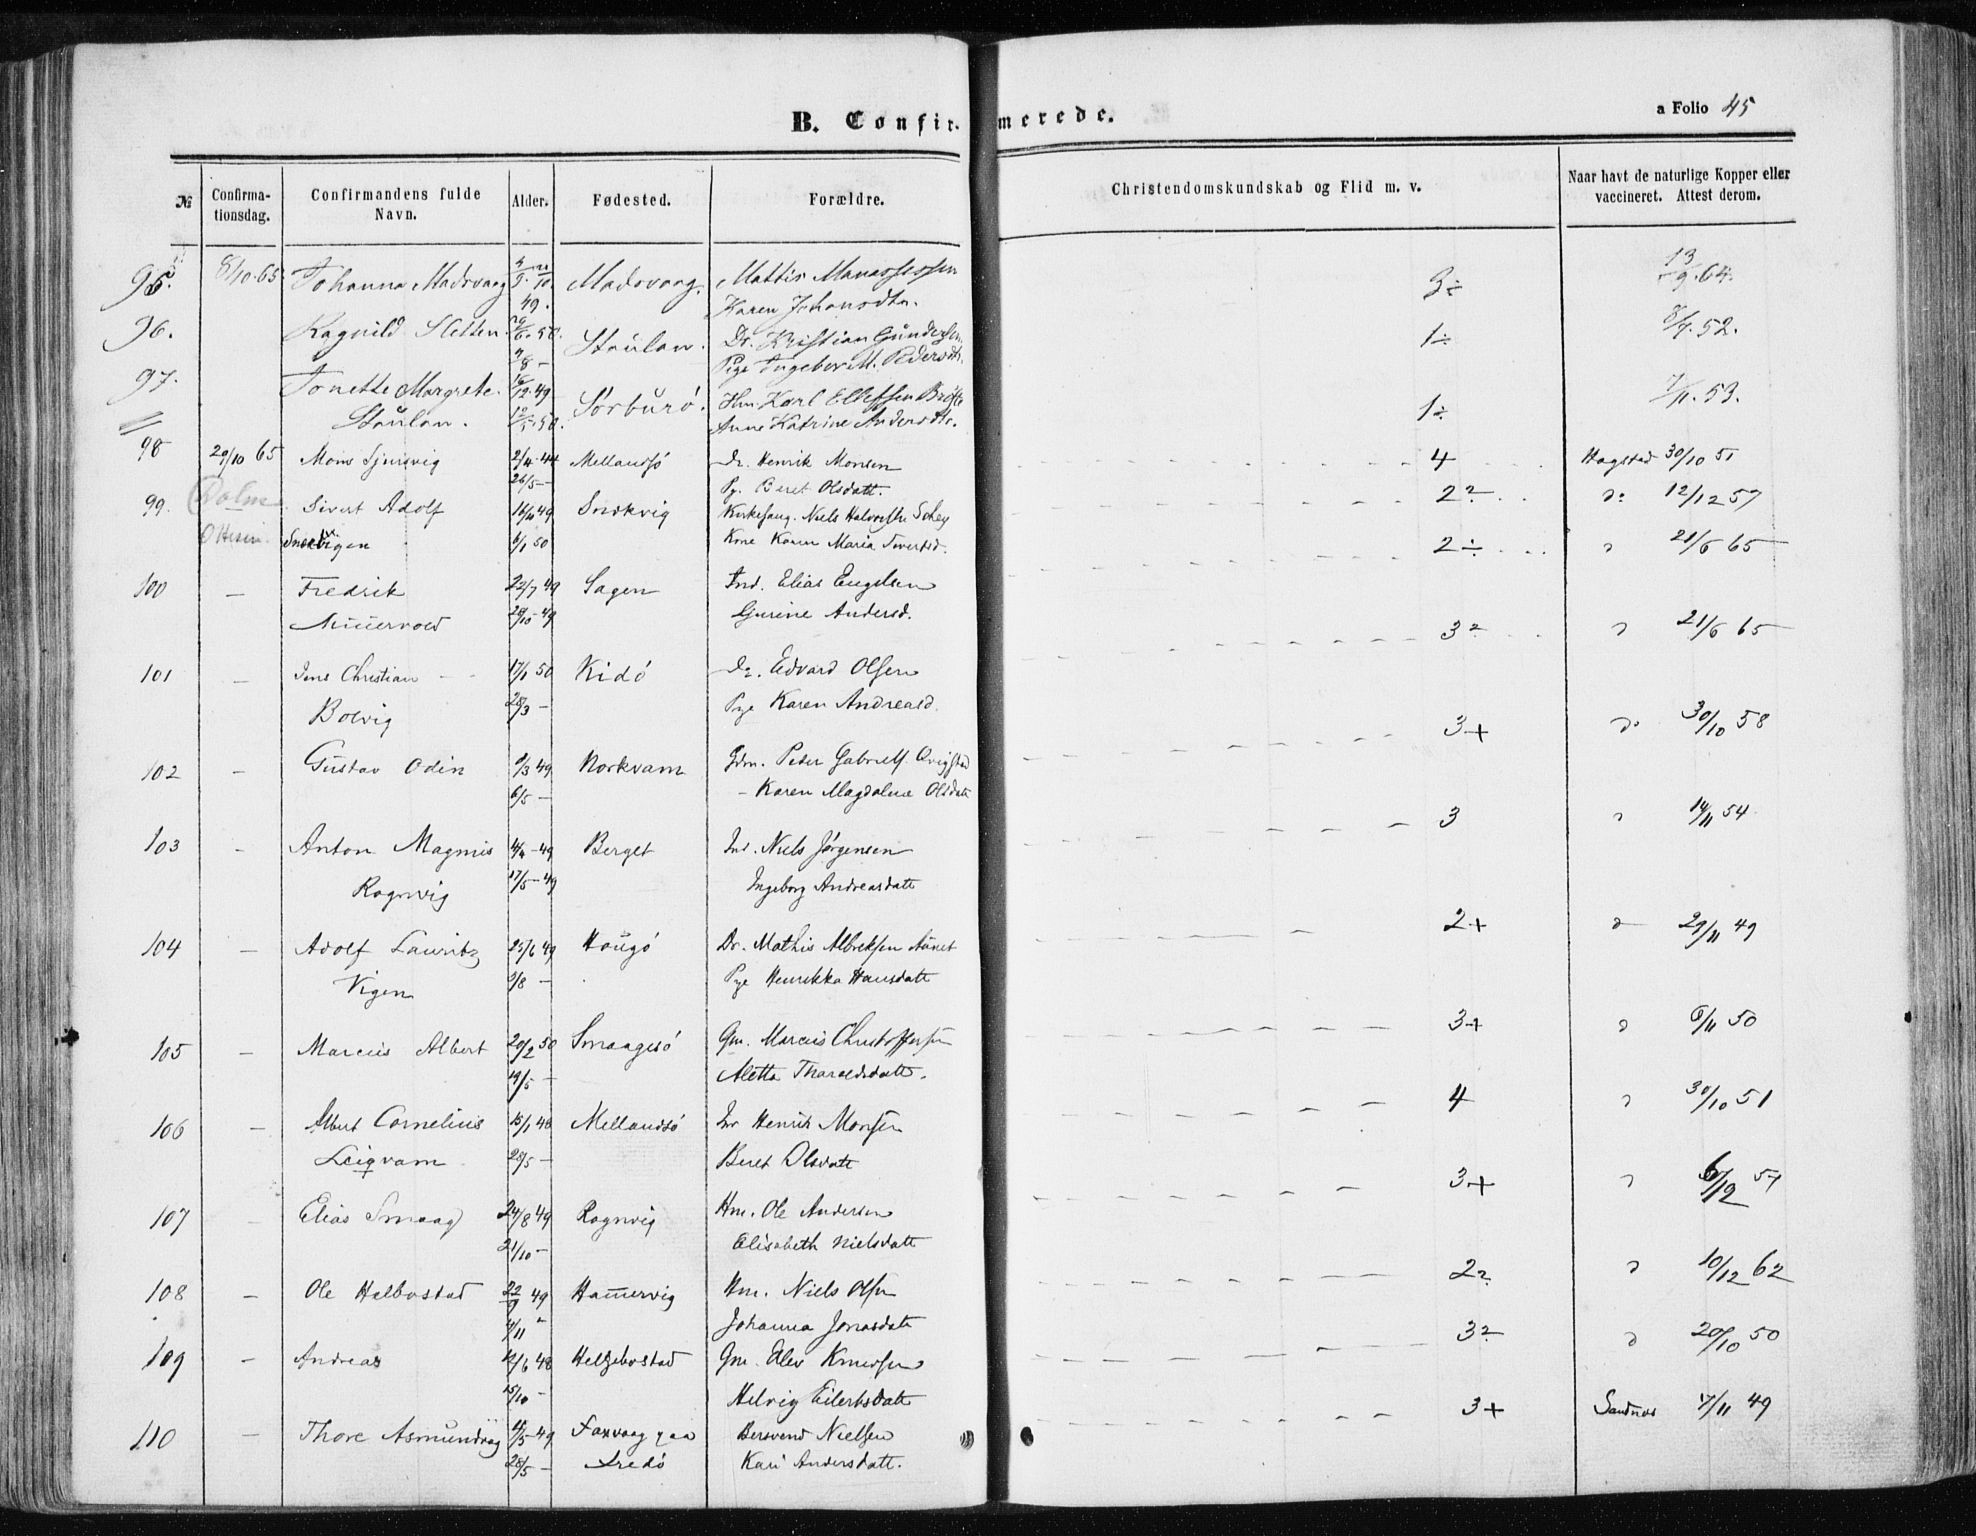 B. Confirmerede.
a Folio 45
№ Confirmationsdag. Confirmandens fulde Navn. Alder. Fødested. Forældre. Christendomskundskab og Flid m. v. Naar havt de naturlige Kopper eller vaccineret. Attest derom.
95. 8/10.65 Johanna Madsvaag Madsvaag. Mattis Manassessen 3÷ 13/9.64.
49. Karen Johansdtr.
96. Ragnild Sletten Staulan. Dr. Kristian Gundersen 1÷ 8/7.52.
Pige Ingebor M. Pedersdtr.
97. Tonette Margrete 12.49 Sørburö. Hm. Karl Ellefsen 1÷ 7/11.53.
Staulan. Anne Katrine Andersdtr.
98 29/10 65 Mons Sjursvig 2/4.44 Mellandsö Dr. Henrik Monsen 4 Hagstad 30/10 51
26/5 – Pg. Beret Olsdatt.
99. Sivert Adolf 16/10 49 Snekvig Kirkesang. Niels Halvorsen Schey 2? do 12/12 57
Snekvigen 6/1 50 Kone Karen Maria Sivertsd. 2÷ 21/6 65
100 – Fredrik 22/7 49 Sagen Ind. Elias Engelsen
28/10-49 Gurine Andersd. 3? 21/6 65
101 – Jens Christian 17/1 50 Kidö Dr. Edvard Olsen
Bolvig 28/3 – Pge Karen Andreasd. 3+ do 30/10 58
102 – Gustav Odin 9/3 49 Norkvam Gdm. Peter Gabriels. Qvigstad
6/5 – – Karen Magdalene Olsdatt 3 14/11 54
103 – Anton Magnus 4/4-49 Berget Ind. Niels Jørgensen
Rognvig 17/5-49 Ingeborg Andreasdatt 2+ 29/11 49
104 – Adolf Lauritz 25/6 49 Hougö Dr. Mathis Albreksen Aunet
Vigen 5/8 – Pge Henrikka Hansdatt 3+ 6/11 50
105 – Marcus Albert 20/2 50 Smaagesö Gm. Marcus Christoffersen
19/5 – Aletta Tharaldsdatt. 4 30/10 51
106 – Albert Cornelius 15/1 48 Mellandsö Ind Henrik Monsen
Leiqvam 28/5 – Beret Olsdatt 3+ 6/12 57
107 – Elias Smaag 24/8 49 Rognvig Hm. Ole Andersen
21/10 – Elisabeth Nielsdatt 2? 10/12 62
108 – Ole Helbostad 22/9 49 Hamervig Hm. Niels Olsen
4/11 " Johanna Jonasdatt 3? 20/10 50
109 – Andreas 12/6 48 Helgebostad Gm. Elev Knudsen
15/10 – Helvig Eilertsdatt 3+ Sandnæs 7/11 49
110 – Thore Asmundvag 15/3-49 Foxvaag paa Bersvend Nielsen
28/5 – Fredö Kari Andersdatt.